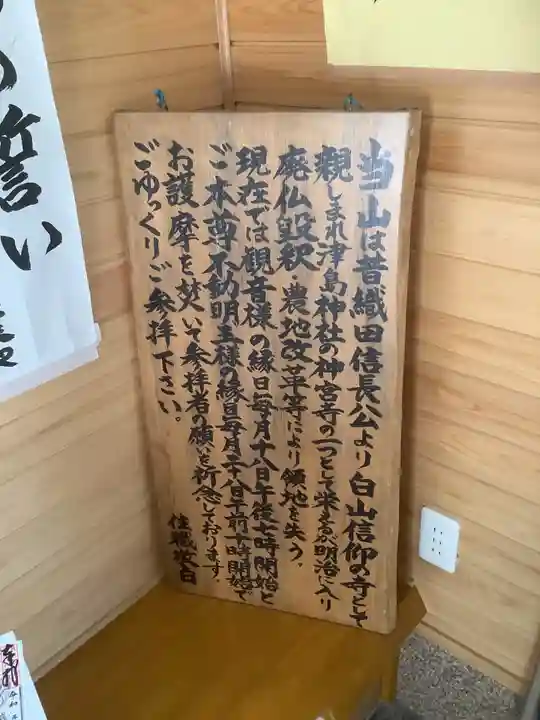 当山は昔織田信長公より白山信仰の寺として
親しまれ津島神社の神宮寺の一つとして栄えるが明治に入り
廃仏毀釈・農地改革等により領地を失う。
現在では観音様の縁日毎月十八日午後七時開始と
ご本尊不動明王様の縁日毎月二十八日午前十時開始で
お護摩を焚いて参拝者の願いを祈念しております。
ごゆっくりご参拝下さい。
住職敬白
の誓い